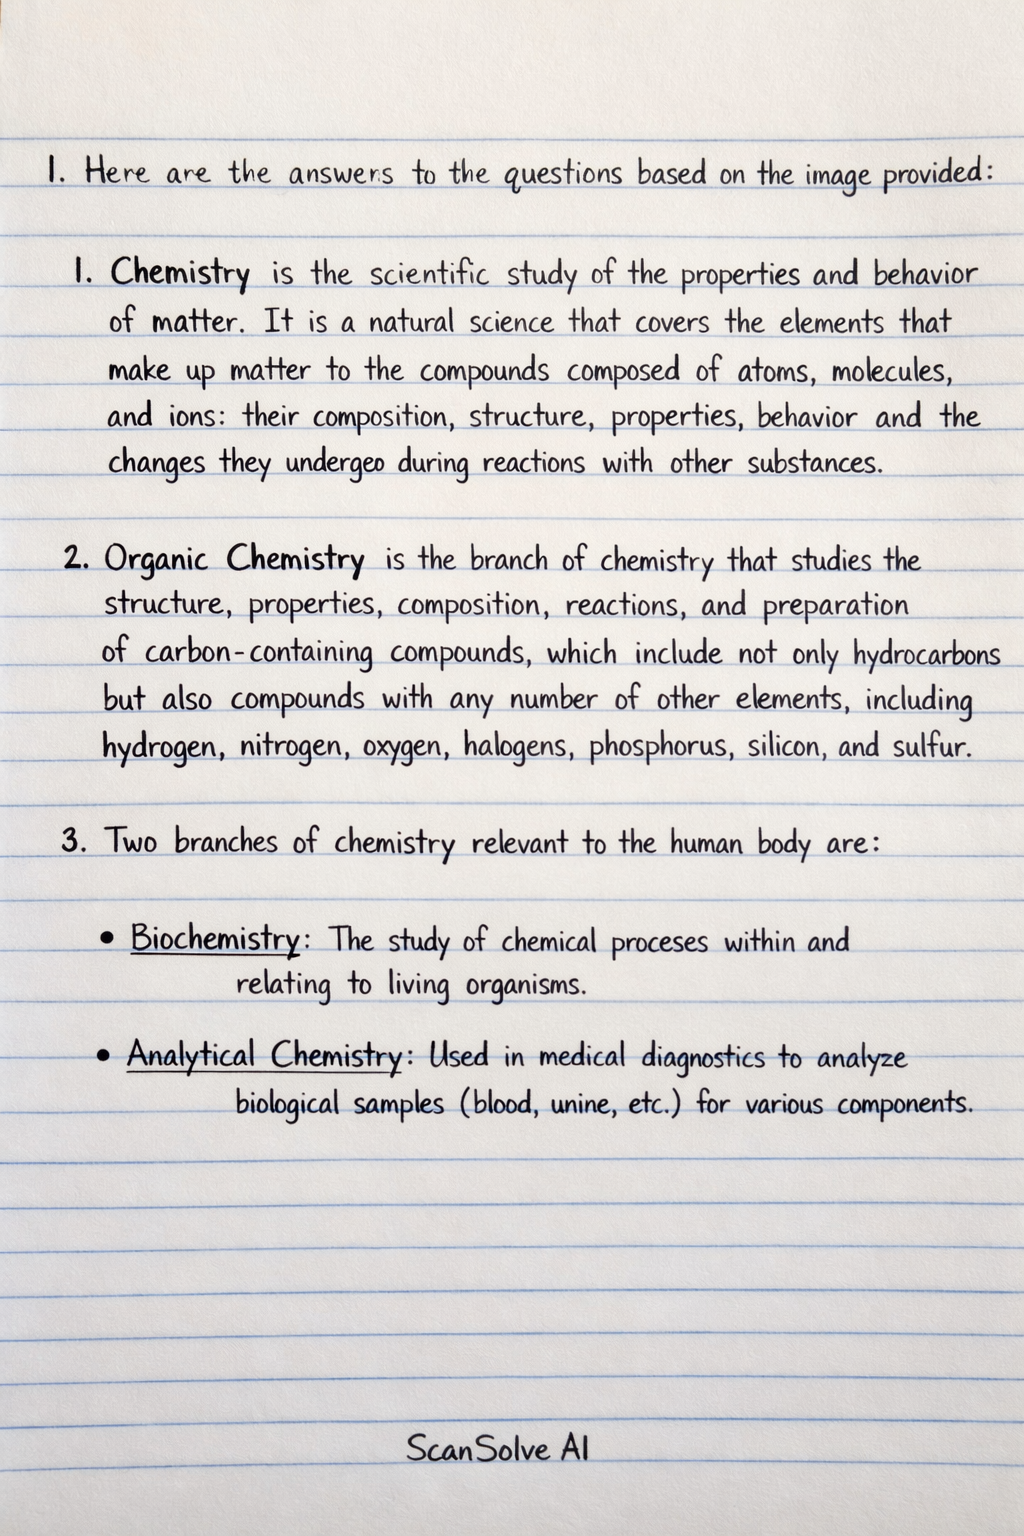 1. Here are the answers to the questions based on the image provided:
1. Chemistry is the scientific study of the properties and behavior
of matter. It is a natural science that covers the elements that
make up matter to the compounds composed of atoms, molecules,
and ions: their composition, structure, properties, behavior and the
changes they undergeo during reactions with other substances.
2. Organic Chemistry is the branch of chemistry that studies the
structure, properties, composition, reactions, and preparation
of carbon-containing compounds, which include not only hydrocarbons
but also compounds with any number of other elements, including
hydrogen, nitrogen, oxygen, halogens, phosphorus, silicon, and sulfur.
3. Two branches of chemistry relevant to the human body are:
• Biochemistry: The study of chemical proceses within and
relating to living organisms.
• Analytical Chemistry: Used in medical diagnostics to analyze
biological samples (blood, unine, etc.) for various components.
ScanSolve AI